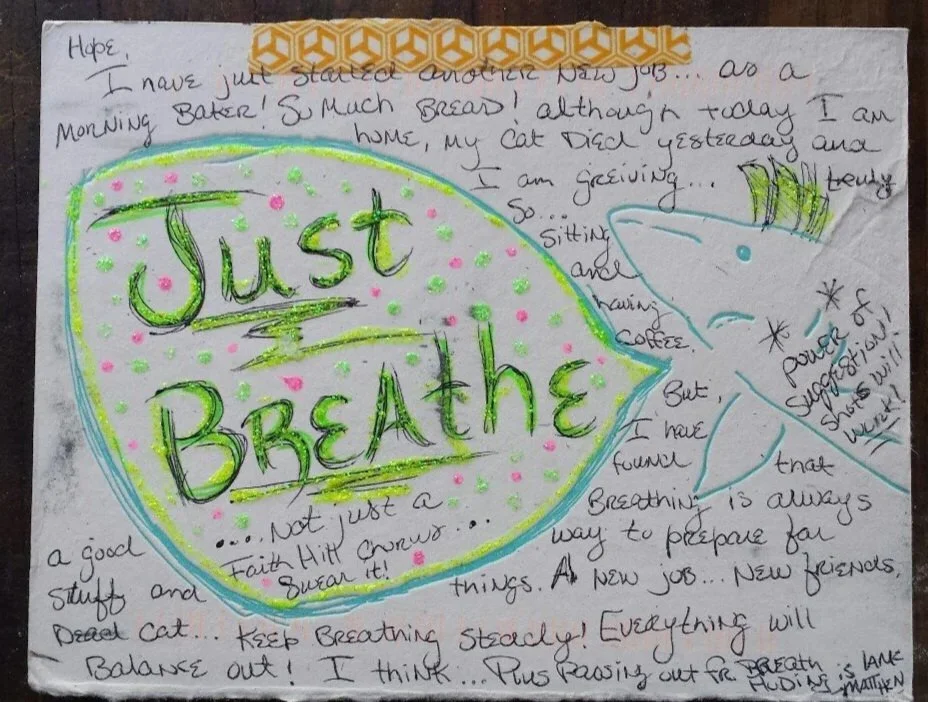 Hope,
I have just started another New job... as a
Morning Baker! So Much Bread! although today I am
home, my cat Died yesterday and
I am greiving...
So...
sitting
and
having
coffee.
But,
I have
found that
Breathing is always
a good way to prepare for
stuff and things. A New job... New friends,
Dead cat... Keep Breathing steady! Everything will
Balance out! I think... Plus Passing out fr Breath
Holding is lame
Just
Breathe
....Not just a
Faith Hill Chorus...
Swear it!
* *
power of
suggestion!
shots will
work!